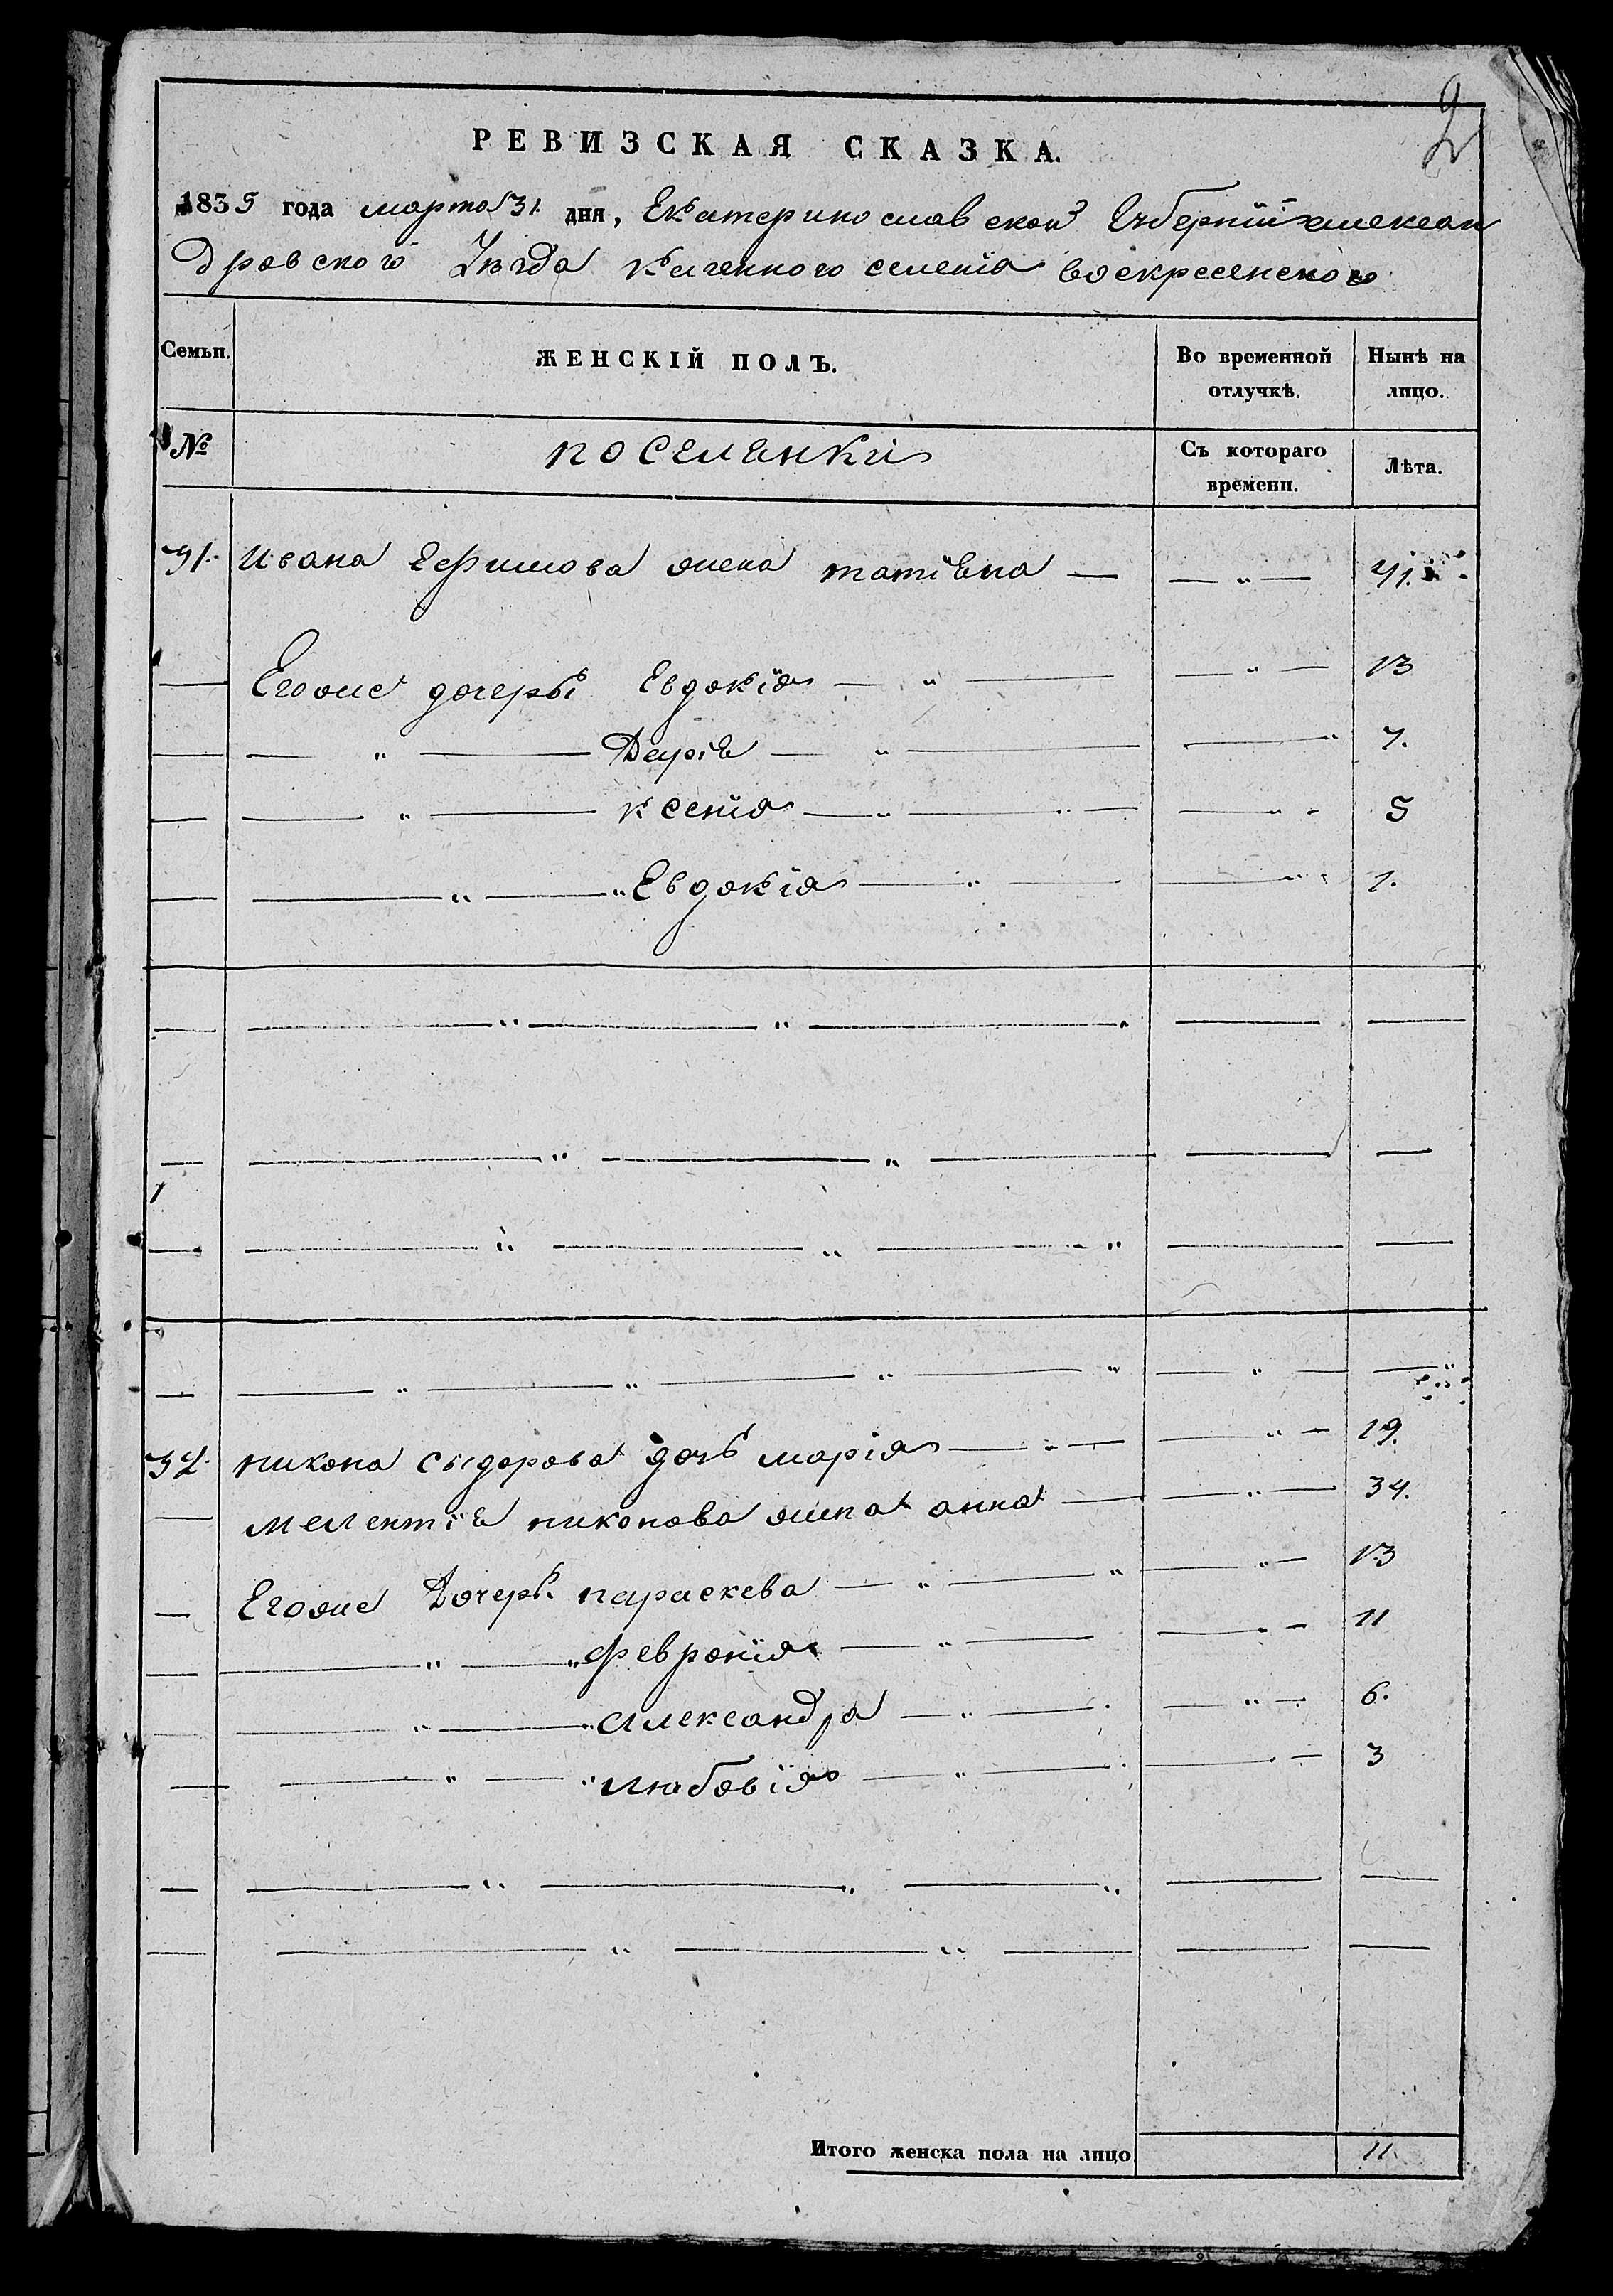 2
РЕВИЗСКАЯ СКАЗКА.
1835 года марта 31. дня, Екатеринославской Губерніи Алексан
дровского Уѣзда казенного селенія Воскресенского
Семьи. ЖЕНСКІЙ ПОЛЪ. Во временной отлучкѣ. Нынѣ на лицо.
№ поселенки Съ котораго времени. Лѣта.
31. Ивана Ефимова жена татіяна — — „ — 41.
— Егоже дочери Евдокія — „ — — „ — 13
— — „ — Дарія — „ — — „ 7.
— — „ — ксенія — „ — — „ — 5
— — „ — „ Евдокія — „ — — „ 1.
— — „ — „ — — —
— — „ — „ — — —
— — „ — „ — „ — —
— — „ — „ — „ — „ — „ — —
32. никона сидорова дочь марія — „ — — „ — 19.
— мелентія никонова жена анна — — „ — 34.
— Егоже Дочери. параскева — „ — „ — „ — 13
— — „ — „ феврония — „ — — „ — 11
— — „ — „ александра — „ — — „ — 6.
— — „ — „ любовія — „ — — „ — 3
— — „ — „ — „ — —
— — „ — „ — — —
Итого женска пола на лицо 11.